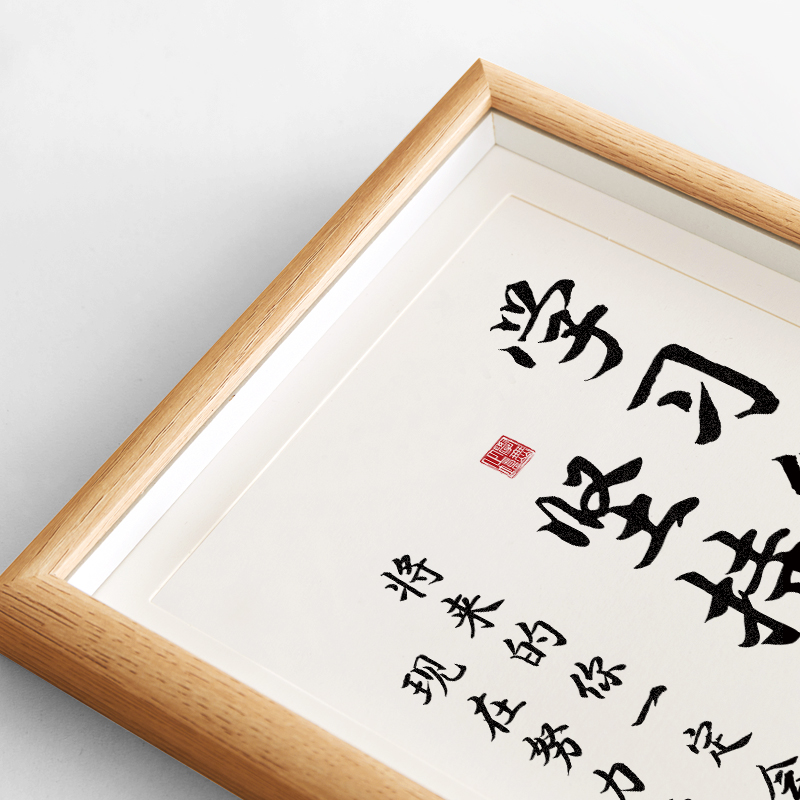 学习
坚持
将来的你一定会
现在努力